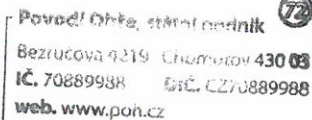 72
Povodí Ohře, státní podnik
Bezručova 4219 Chomutov 430 03
IČ. 70889988 DIČ. CZ70889988
web. www.poh.cz